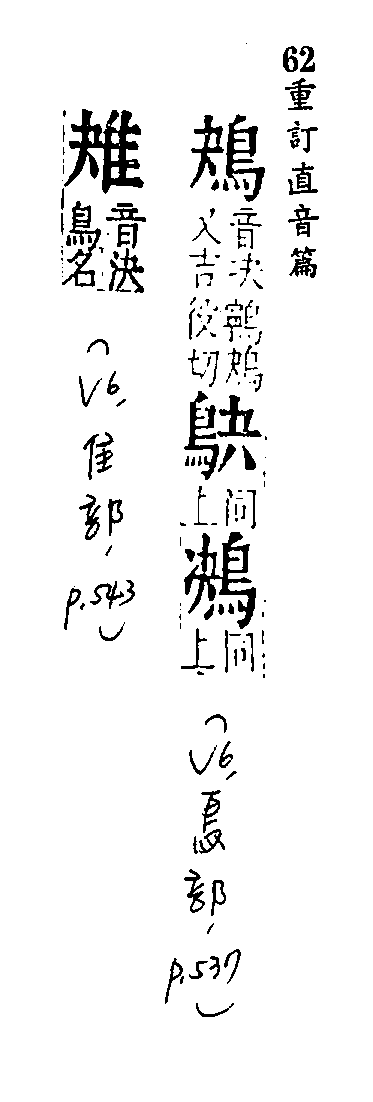 62重訂直音篇
鴂
音决
鴂
又吉役切
鴃
同上
同上
(V6, 鳥部, p.537)
音決
鳥名
(V6, 隹部, p.543)